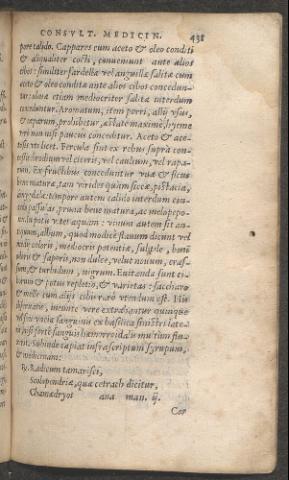 CONSVLT. MEDICIN. 431
pore calido. Cappares cum aceto & oleo conditi
& aliqualiter cocti, conueniunt ante alios
cibos: similiter sardellæ vel anguillæ salitæ cum
aceto & oleo condita ante alios cibos concedun-
tur: oliuæ etiam mediocriter salitæ interdum
conceduntur. Aromatum, item porri, allij vsus,
& caparum, prohibetur, æstate maxime, hyeme
verò non nisi paucus concedatur. Aceto & ace-
tosis vti licet. Fercula sint ex rebus suprà con-
cessis brodium vel ciceris, vel caulium, vel rapa-
rum. Ex fructibus conceduntur vuæ & ficus
bene maturæ, tam virides quàm siccæ, pistachia,
amygdalæ: tempore autem calido interdum con-
passulæ, pruna bene matura, ac melopepo-
potu vetet aquam: vinum autem sit an-
album, quod modicè flauum dicunt vel
coloris, mediocris potentiæ, fulgide, boni
odoris & saporis, non dulce, velut nouum, cras-
sum, & turbidum, nigrum. Euitanda sunt ci-
borum & potus repletio, & varietas: saccharo
& melle cum alijs cibis rarò vtendum est. His
obseruatis, ineunte vere extrahantur quinque
vnciæ sanguinis ex basilica sinistri late-
ris, nisi fortè sanguis hæmorrhoidalis motum fiat-
Subinde capiat infrascriptum syrupum,
& medicinam:
℞. Radicum tamarisci,
Scolopendriæ, quæ cetrach dicitur,
Chamædryos ana man. ij.
Cor